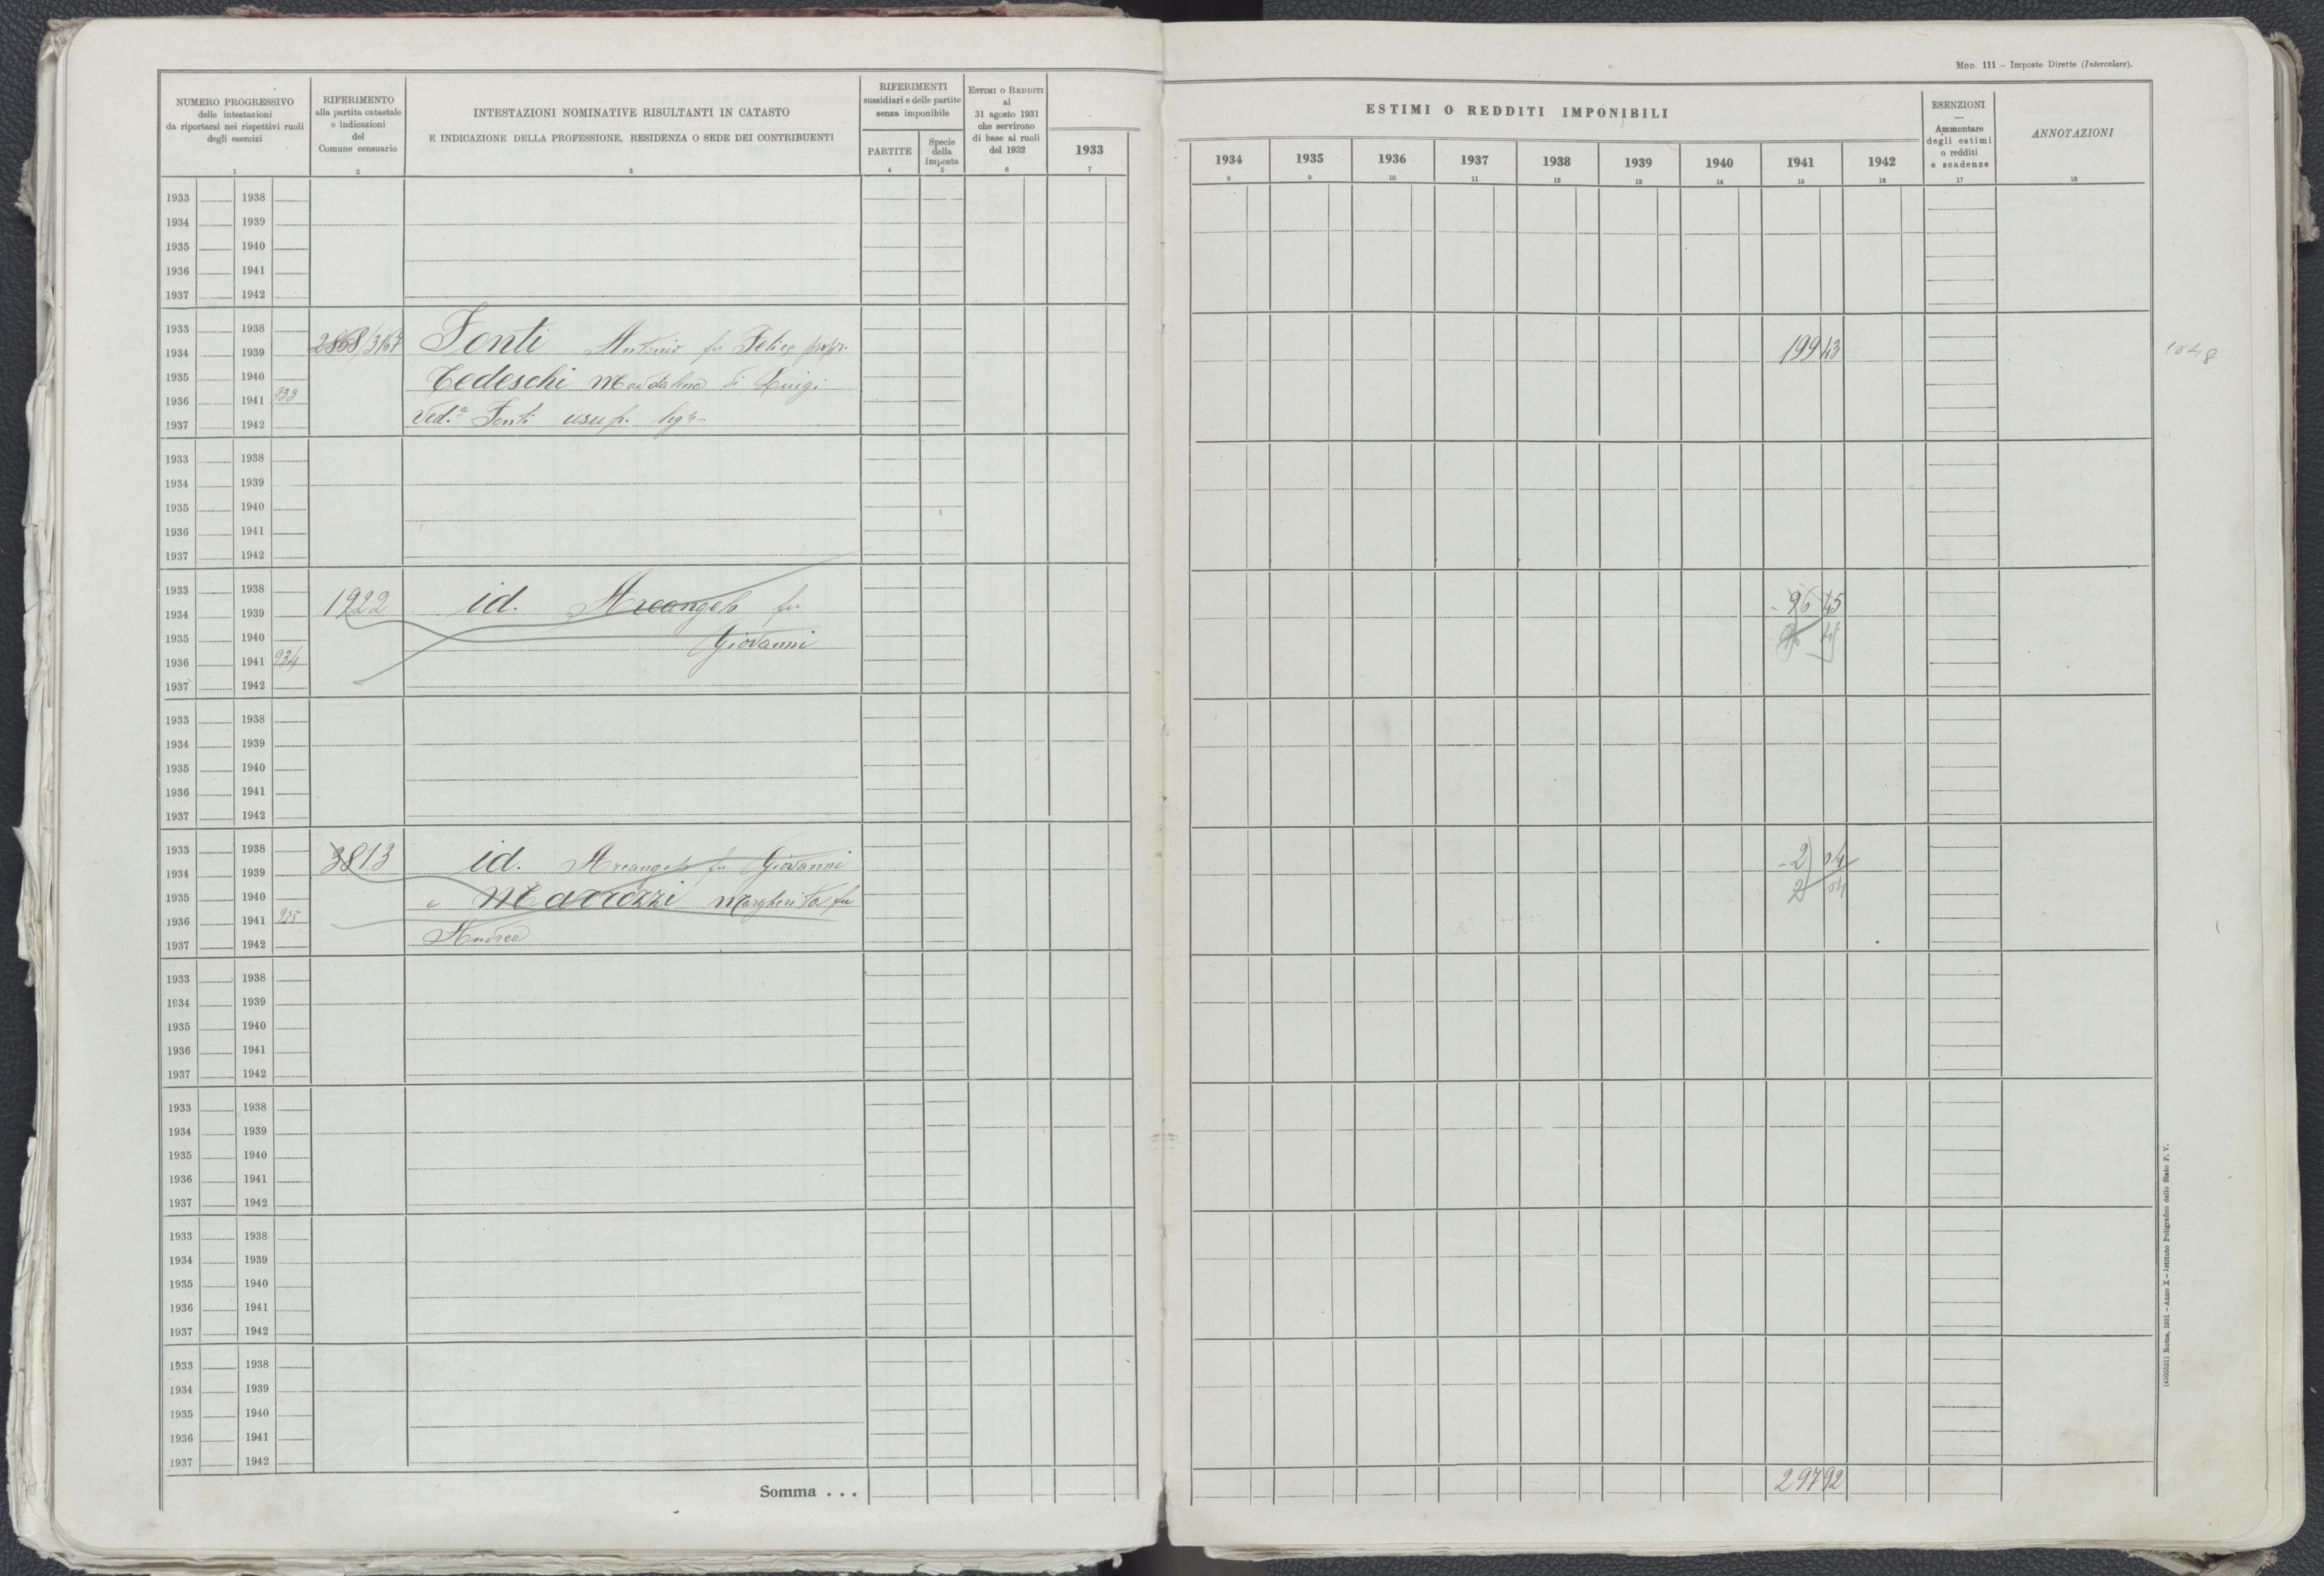 Mod. 111 – Imposte Dirette (Intercalare).
NUMERO PROGRESSIVO
delle intestazioni
da riportarsi nei rispettivi ruoli
degli esercizi
1
RIFERIMENTO
alla partita catastale
e indicazioni
del
Comune censuario
2
INTESTAZIONI NOMINATIVE RISULTANTI IN CATASTO
E INDICAZIONE DELLA PROFESSIONE, RESIDENZA O SEDE DEI CONTRIBUENTI
3
RIFERIMENTI
sussidiari e delle partite
senza imponibile
PARTITE
4
Specie
della
imposta
5
Estimi o Redditi
al
31 agosto 1931
che servirono
di base ai ruoli
del 1932
6
1933
7
ESTIMI O REDDITI IMPONIBILI
1934 1935 1936 1937 1938 1939 1940 1941 1942
8 9 10 11 12 13 14 15 16
ESENZIONI
—
Ammontare
degli estimi
o redditi
e scadenze
17
ANNOTAZIONI
18
1933 1938
1934 1939
1935 1940
1936 1941
1937 1942
1933 1938
2868/3167 Fonti Antonio fu Felice propr. 199 43
1934 1939
1935 1940 Tedeschi Maddalena di Luigi
1936 1941 933
1937 1942 Ved.ª Fonti usuf.
1048
1933 1938
1934 1939
1935 1940
1936 1941
1937 1942
1933 1938
1934 1939 1922 id. Arcangelo fu 96 45
1935 1940 Giovanni
1936 1941 934
1937 1942
1933 1938
1934 1939
1935 1940
1936 1941
1937 1942
1933 1938
1934 1939 3813 id. Arcangelo fu Giovanni 2 04
1935 1940 e Marrozzi Margherita fu 2 04
1936 1941 935
1937 1942 Andrea
1933 1938
1934 1939
1935 1940
1936 1941
1937 1942
1933 1938
1934 1939
1935 1940
1936 1941
1937 1942
1933 1938
1934 1939
1935 1940
1936 1941
1937 1942
1933 1938
1934 1939
1935 1940
1936 1941
1937 1942
Somma . . . 297 92
(4103531) Roma, 1931 – Anno X – Istituto Poligrafico dello Stato P. V.